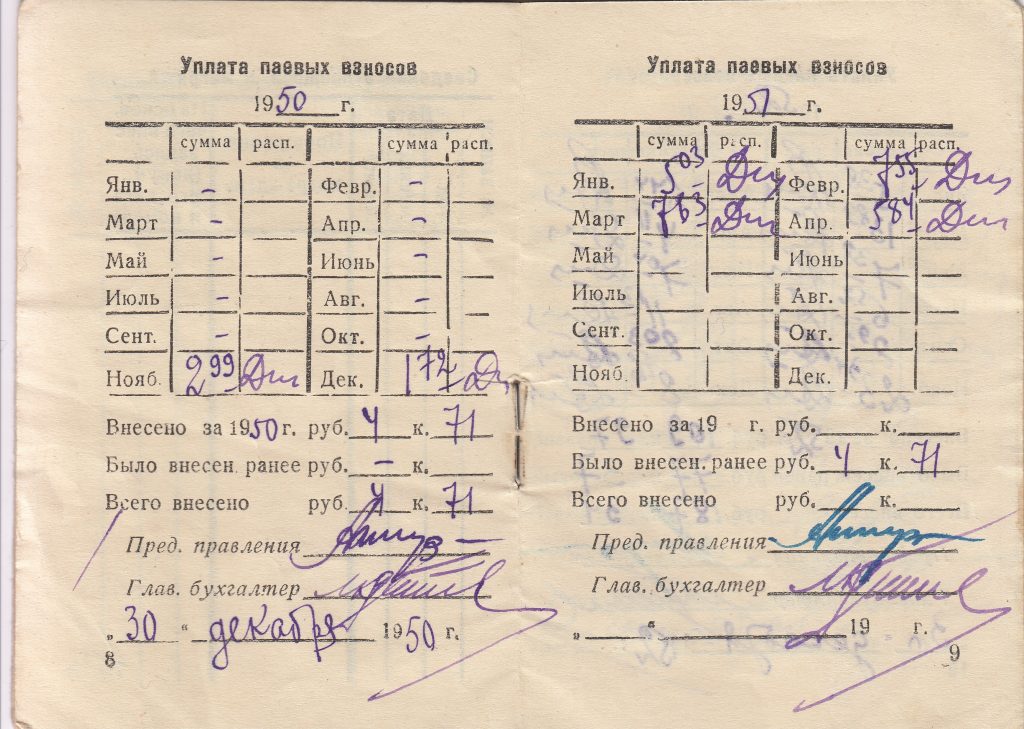 Уплата паевых взносов
1950 г.
сумма расп. сумма расп.
Янв. – Февр. –
Март – Апр. –
Май – Июнь –
Июль – Авг. –
Сент. – Окт. –
Нояб. 2 99 Дек. 1 72
Внесено за 1950 г. руб. 4 к. 71
Было внесен. ранее руб. – к.
Всего внесено руб. 4 к. 71
Пред. правления
Глав. бухгалтер
„30“ декабря 1950 г.
8
Уплата паевых взносов
1951 г.
сумма расп. сумма расп.
Янв. 503 Февр. 755
Март 763 Апр. 584
Май Июнь
Июль Авг.
Сент. Окт.
Нояб. Дек.
Внесено за 19 г. руб. к.
Было внесен. ранее руб. 4 к. 71
Всего внесено руб. к.
Пред. правления
Глав. бухгалтер
„ “ 19 г.
9